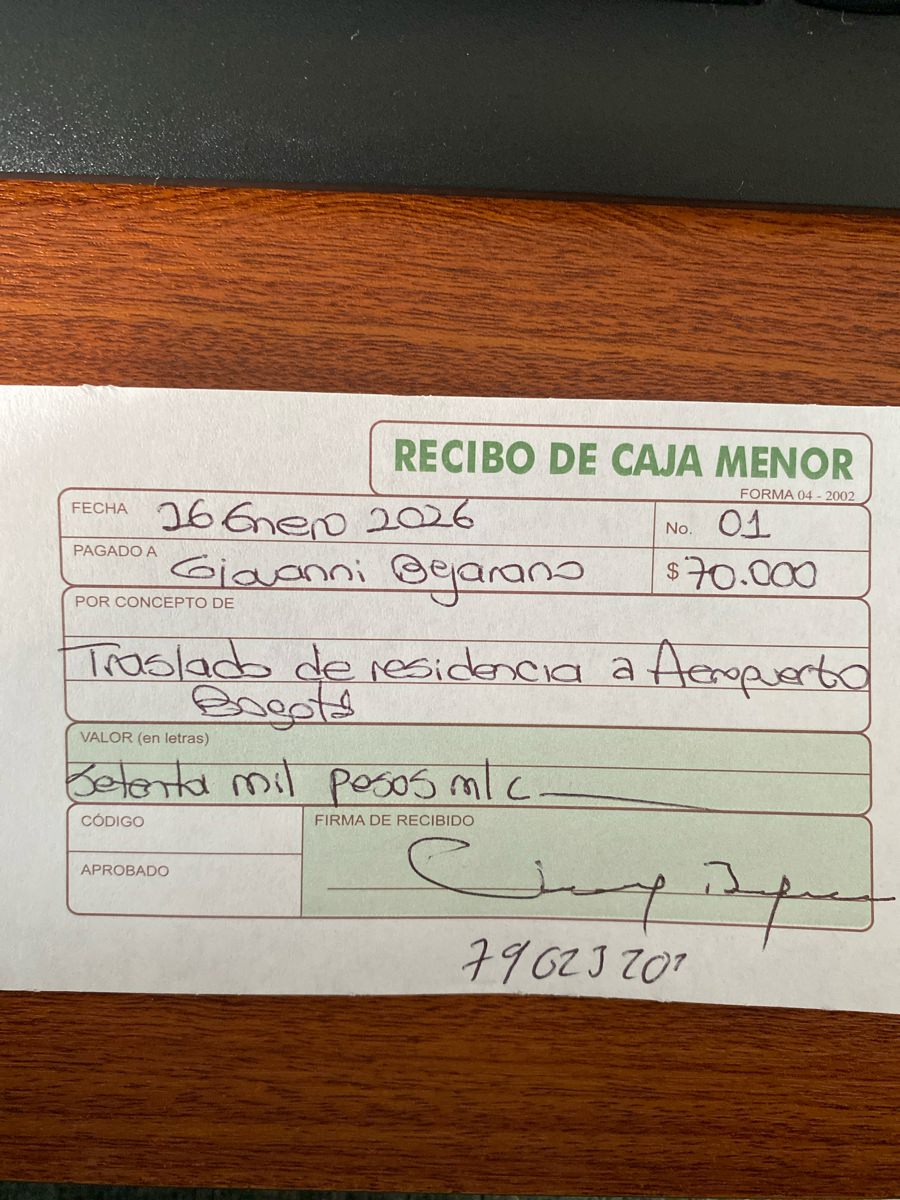 RECIBO DE CAJA MENOR
FORMA 04 - 2002
FECHA 26 Enero 2026 No. 01
PAGADO A Giovanni Bejarano $ 70.000
POR CONCEPTO DE
Traslado de residencia a Aeropuerto
Bogotá
VALOR (en letras)
Setenta mil pesos m/c
CÓDIGO
FIRMA DE RECIBIDO
APROBADO